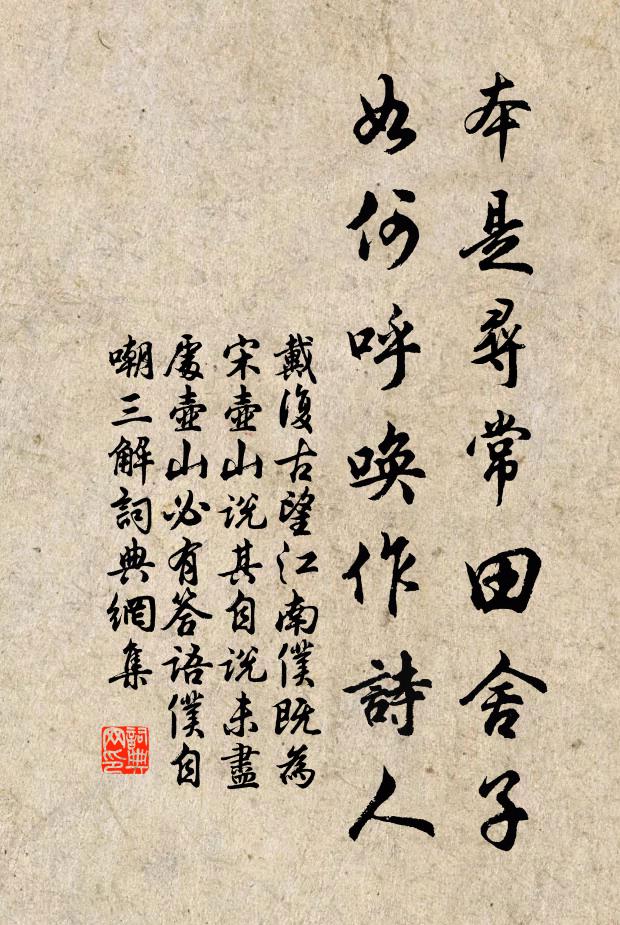 本是尋常田舍子
如何呼喚作詩人
戴復古望江南僕既為
宋壺山說其自說未盡
處壺山必有答語僕自
嘲三解詞典網集
詞典網印